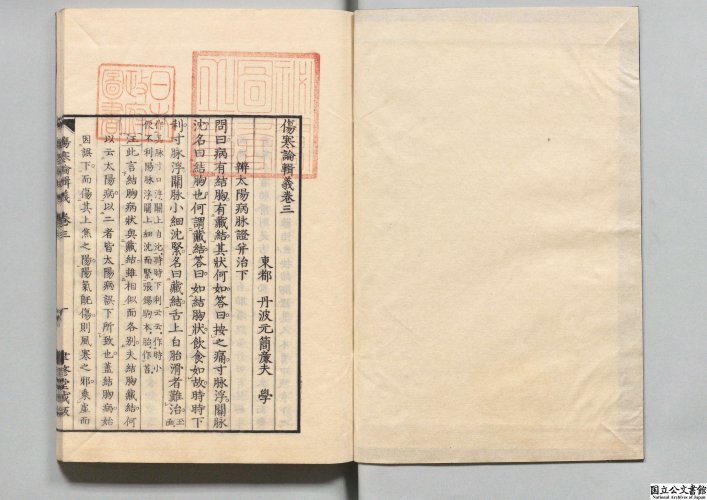 傷寒論輯義卷三
東都 丹波元簡廉夫 學
辨太陽病脉證并治下
問曰病有結胸有藏結其狀何如答曰按之痛寸脉浮關脉
沈名曰結胸也何謂藏結答曰如結胸狀飲食如故時時下
利寸脉浮關脉小細沈緊名曰藏結舌上白胎滑者難治
注此言結胸病狀與藏結雖相似而各別夫結胸藏結何
以云太陽病以二者皆太陽病誤下所致也蓋結胸病始
因誤下而傷其上焦之陽陽氣既傷則風寒之邪乘虛而
傷寒論輯義 卷三
日本
政府
圖書
国立公文書館
National Archives of Japan